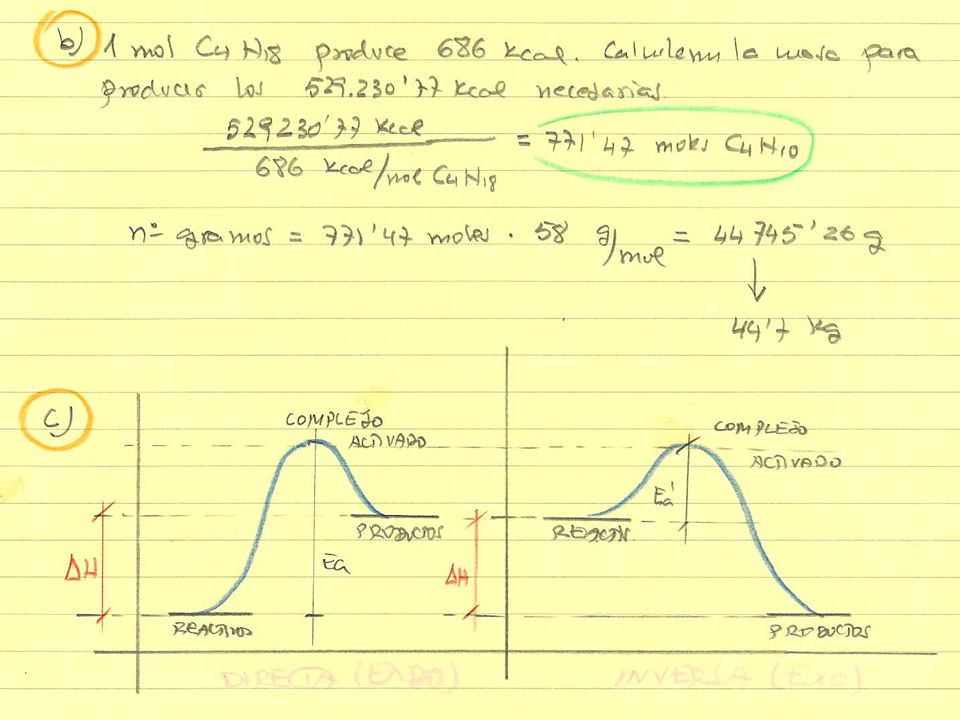 b) 1 mol C4 H18 produce 686 kcal. Calculemos la masa para
producir las 529.230'77 kcal necesarias.
529230'77 kcal
686 kcal/mol C4 H18
= 771'47 moles C4H10
nº gramos = 771'47 moles · 58 g/mol = 44745'26 g
↓
44'7 kg
c)
COMPLEJO
ACTIVADO
PRODUCTOS
ΔH
Ea
REACTIVOS
DIRECTA (ENDO)
COMPLEJO
ACTIVADO
Ea'
REACTIVOS
ΔH
PRODUCTOS
INVERSA (EXO)